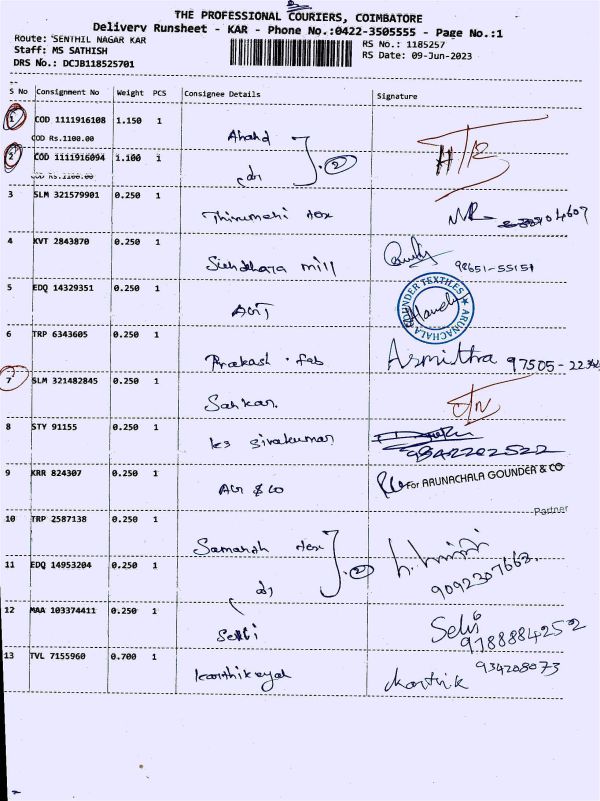 THE PROFESSIONAL COURIERS, COIMBATORE
Delivery Runsheet - KAR - Phone No.:0422-3505555 - Page No.:1
Route: 'SENTHIL NAGAR KAR
RS No.: 1185257
Staff: MS SATHISH
RS Date: 09-Jun-2023
DRS No.: DCJB118525701
S No Consignment No Weight PCS Consignee Details Signature
1 COD 1111916108 1.150 1
COD Rs.1100.00
Anand
2 COD 1111916094 1.100 1
2
COD Rs.1100.00
do
3 SLM 321579901 0.250 1
tex
4 KVT 2843870 0.250 1
mill 98651-55151
5 EDQ 14329351 0.250 1
GOUNDER TEXTILES ★ ARUNACHALA
AGT
6 TRP 6343605 0.250 1
Prakash . fab Asmithra 97505-
7 SLM 321482845 0.250 1
Sankar.
8 STY 91155 0.250 1
ks sivakumar 9842202522
9 KRR 824307 0.250 1
For ARUNACHALA GOUNDER & CO
AG & co
Partner
10 TRP 2587138 0.250 1
tex
11 EDQ 14953204 0.250 1
2
do 9092307663.
12 MAA 103374411 0.250 1
Selvi Selvi
9788884252
13 TVL 7155960 0.700 1
934208073
karthikeyan Karthik